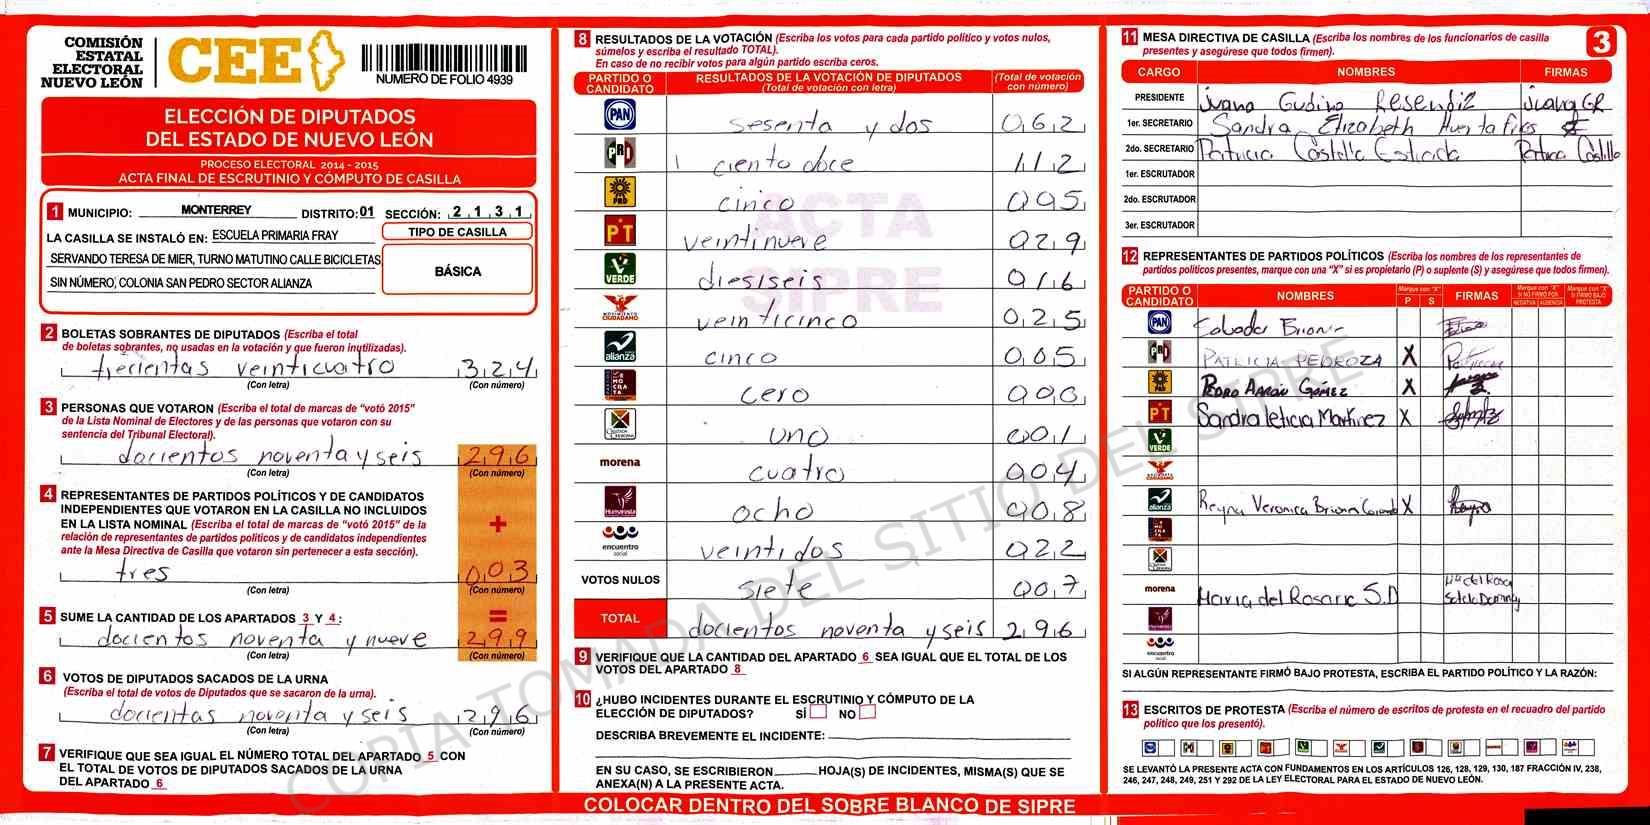 COMISIÓN
ESTATAL
ELECTORAL
NUEVO LEÓN
CEE
NUMERO DE FOLIO 4939
ELECCIÓN DE DIPUTADOS
DEL ESTADO DE NUEVO LEÓN
PROCESO ELECTORAL 2014 - 2015
ACTA FINAL DE ESCRUTINIO Y CÓMPUTO DE CASILLA
1 MUNICIPIO: MONTERREY DISTRITO: 01 SECCIÓN: 2 1 3 1
LA CASILLA SE INSTALÓ EN: ESCUELA PRIMARIA FRAY
SERVANDO TERESA DE MIER, TURNO MATUTINO CALLE BICICLETAS
SIN NÚMERO, COLONIA SAN PEDRO SECTOR ALIANZA
TIPO DE CASILLA
BÁSICA
2 BOLETAS SOBRANTES DE DIPUTADOS (Escriba el total
de boletas sobrantes, no usadas en la votación y que fueron inutilizadas).
trecientas veinticuatro 3 2 4
(Con letra) (Con número)
3 PERSONAS QUE VOTARON (Escriba el total de marcas de “votó 2015”
de la Lista Nominal de Electores y de las personas que votaron con su
sentencia del Tribunal Electoral).
docientos noventa y seis 2 9 6
(Con letra) (Con número)
4 REPRESENTANTES DE PARTIDOS POLÍTICOS Y DE CANDIDATOS
INDEPENDIENTES QUE VOTARON EN LA CASILLA NO INCLUIDOS
EN LA LISTA NOMINAL (Escriba el total de marcas de “votó 2015” de la
relación de representantes de partidos políticos y de candidatos independientes
ante la Mesa Directiva de Casilla que votaron sin pertenecer a esta sección).
+
tres 0 0 3
(Con letra) (Con número)
=
5 SUME LA CANTIDAD DE LOS APARTADOS 3 Y 4:
docientos noventa y nueve 2 9 9
(Con letra) (Con número)
6 VOTOS DE DIPUTADOS SACADOS DE LA URNA
(Escriba el total de votos de Diputados que se sacaron de la urna).
docientas noventa y seis 2 9 6
(Con letra) (Con número)
7 VERIFIQUE QUE SEA IGUAL EL NÚMERO TOTAL DEL APARTADO 5 CON
EL TOTAL DE VOTOS DE DIPUTADOS SACADOS DE LA URNA
DEL APARTADO 6
8 RESULTADOS DE LA VOTACIÓN (Escriba los votos para cada partido político y votos nulos,
súmelos y escriba el resultado TOTAL).
En caso de no recibir votos para algún partido escriba ceros.
PARTIDO O CANDIDATO
RESULTADOS DE LA VOTACIÓN DE DIPUTADOS
(Total de votación con letra)
(Total de votación con número)
PAN sesenta y dos 0 6 2
PRD ciento doce 1 1 2
PRD cinco 0 0 5
PT veintinueve 0 2 9
VERDE diesiseis 0 1 6
MOVIMIENTO CIUDADANO veinticinco 0 2 5
alianza cinco 0 0 5
cero 0 0 0
uno 0 0 1
morena cuatro 0 0 4
Humanista ocho 0 0 8
encuentro social veintidos 0 2 2
VOTOS NULOS siete 0 0 7
TOTAL docientos noventa y seis 2 9 6
ACTA
SIPRE
9 VERIFIQUE QUE LA CANTIDAD DEL APARTADO 6 SEA IGUAL QUE EL TOTAL DE LOS
VOTOS DEL APARTADO 8
10 ¿HUBO INCIDENTES DURANTE EL ESCRUTINIO Y CÓMPUTO DE LA
ELECCIÓN DE DIPUTADOS? SÍ NO
DESCRIBA BREVEMENTE EL INCIDENTE:
EN SU CASO, SE ESCRIBIERON HOJA(S) DE INCIDENTES, MISMA(S) QUE SE
ANEXA(N) A LA PRESENTE ACTA.
COLOCAR DENTRO DEL SOBRE BLANCO DE SIPRE
11 MESA DIRECTIVA DE CASILLA (Escriba los nombres de los funcionarios de casilla
presentes y asegúrese que todos firmen).
3
CARGO NOMBRES FIRMAS
PRESIDENTE Juana Gudino Resendiz Juana GR
1er. SECRETARIO Sandra Elizabeth Huerta
2do. SECRETARIO Patricia Castillo Estrada Castillo
1er. ESCRUTADOR
2do. ESCRUTADOR
3er. ESCRUTADOR
12 REPRESENTANTES DE PARTIDOS POLÍTICOS (Escriba los nombres de los representantes de
partidos políticos presentes, marque con una “X” si es propietario (P) o suplente (S) y asegúrese que todos firmen).
PARTIDO O CANDIDATO
NOMBRES
Marque con "X"
P S
FIRMAS
Marque con "X" SI NO FIRMÓ POR
NEGATIVA AUSENCIA
Marque con "X" SI FIRMÓ BAJO PROTESTA
PAN
PATRICIA PEDROZA X
PRD PEDRO AARON GÓMEZ X
PT Sandra leticia Martinez X
VERDE
alianza Reyna Veronica Briones X
morena Maria del Rosario S.D
encuentro social
SI ALGÚN REPRESENTANTE FIRMÓ BAJO PROTESTA, ESCRIBA EL PARTIDO POLÍTICO Y LA RAZÓN:
13 ESCRITOS DE PROTESTA (Escriba el número de escritos de protesta en el recuadro del partido
político que los presentó).
SE LEVANTÓ LA PRESENTE ACTA CON FUNDAMENTOS EN LOS ARTÍCULOS 126, 128, 129, 130, 187 FRACCIÓN IV, 238,
246, 247, 248, 249, 251 Y 292 DE LA LEY ELECTORAL PARA EL ESTADO DE NUEVO LEÓN.
COPIA TOMADA DEL SITIO DEL SIPRE